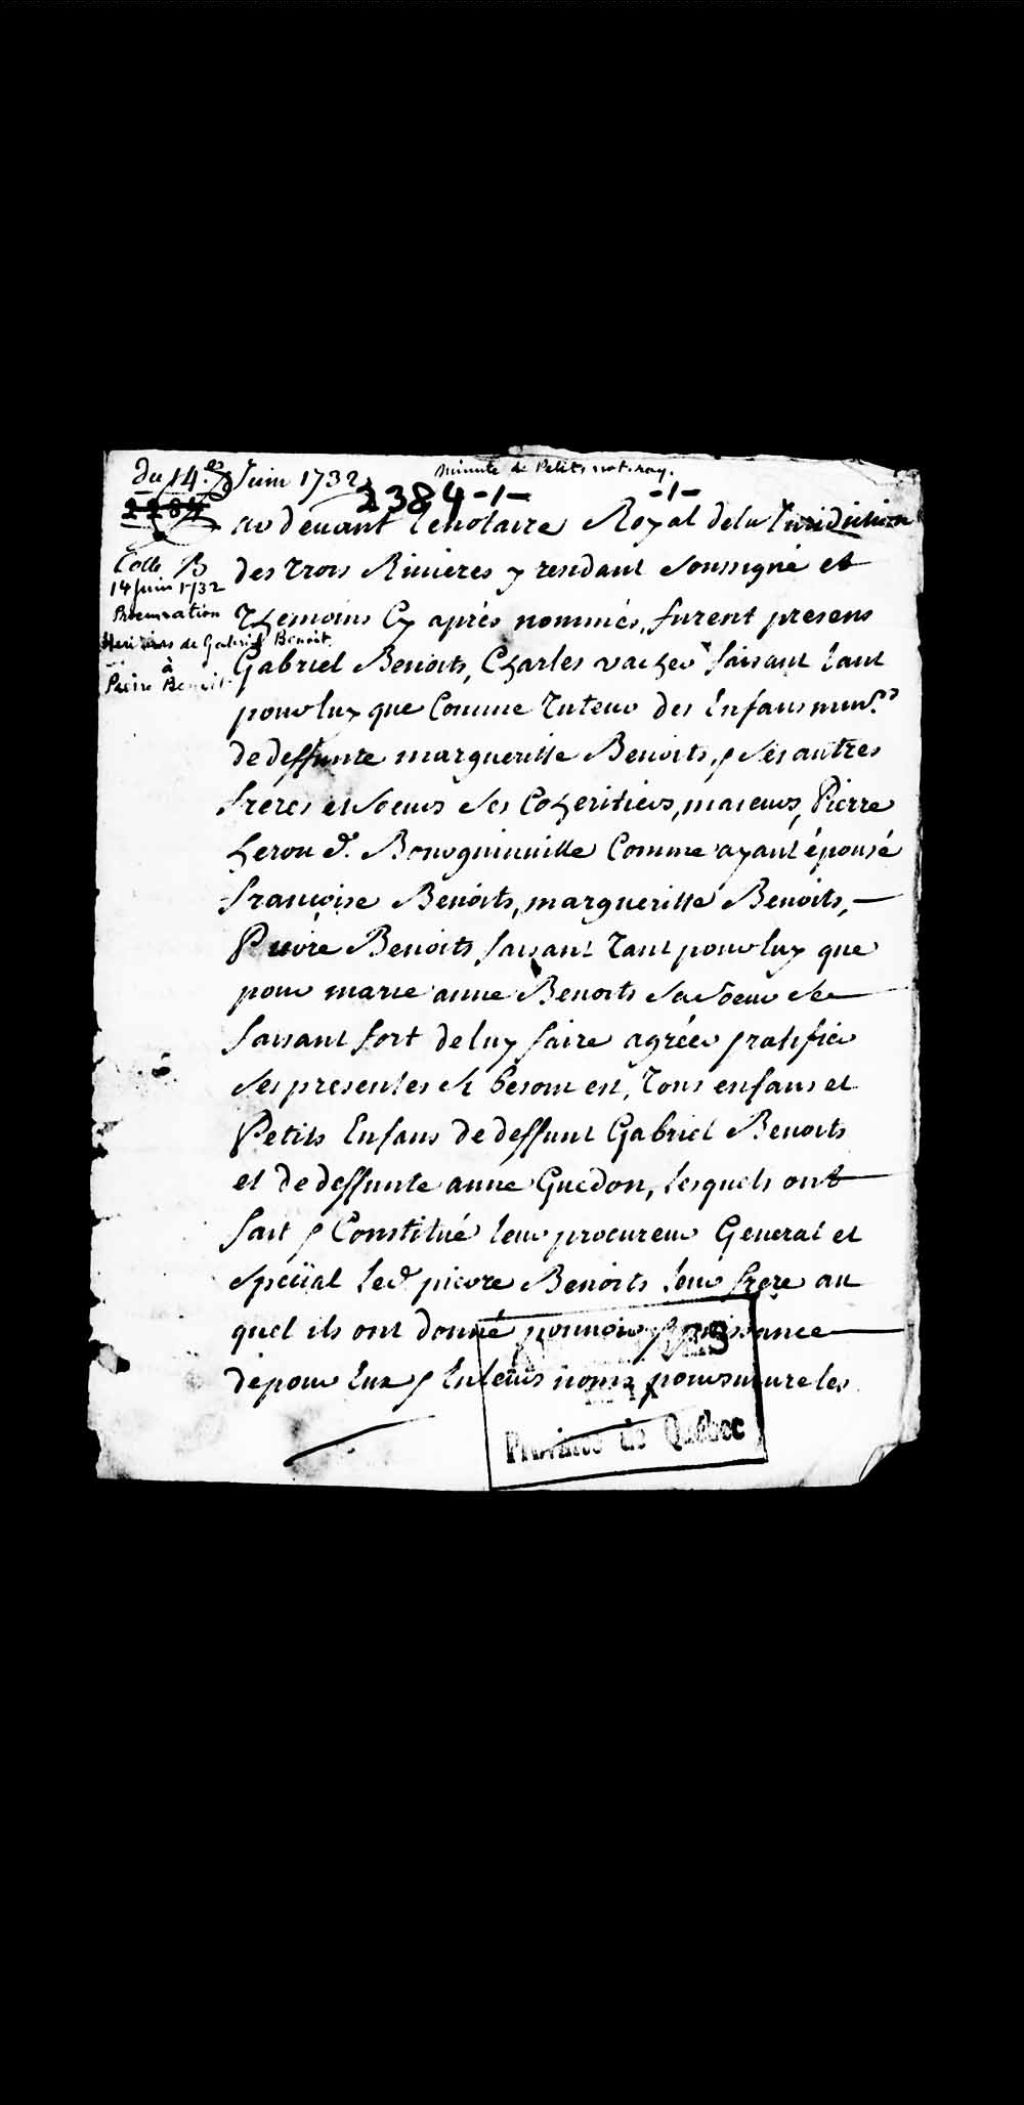 du 14.e Juin 1732
Minute de Petit not. roy.
2384 -1-
-1-
2284
Cotte B
14 Juin 1732
Procuration
Heritiers de Gabriel Benoit
à
Pierre Benoit
Par devant le notaire Royal de la Juridiction
des trois Rivieres y rendant soussigné et
Themoins Cy aprés nommés, furent presens
Gabriel Benoits, Charles vacher faisant tant
pour luy que Comme Tuteur des Enfans mins.
de deffunte margueritte Benoits, & ses autres
freres et soeurs ses Coheritiers, majeurs, Pierre
herou d. Bourguinville Comme ayant épousé
françoise Benoits, margueritte Benoits, —
Pierre Benoits faisant Tant pour luy que
pour marie anne Benoits sa soeur se —
faisant fort de luy faire agréer & ratifier
ses presentes si besoin est, Tous enfans et
Petits Enfans de deffunt Gabriel Benoits
et de deffunte anne Guedon, lesquels ont —
fait & Constitué leur procureur General et
special led. pierre Benoits leur frere au
quel ils ont donné pouvoir & puissance —
de pour Eux & En leurs noms poursuivre les
Province de Québec